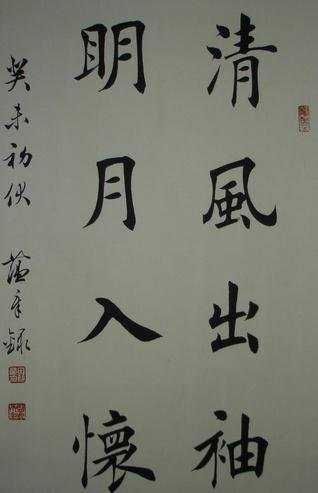 清風出袖
明月入懷
癸未初伏